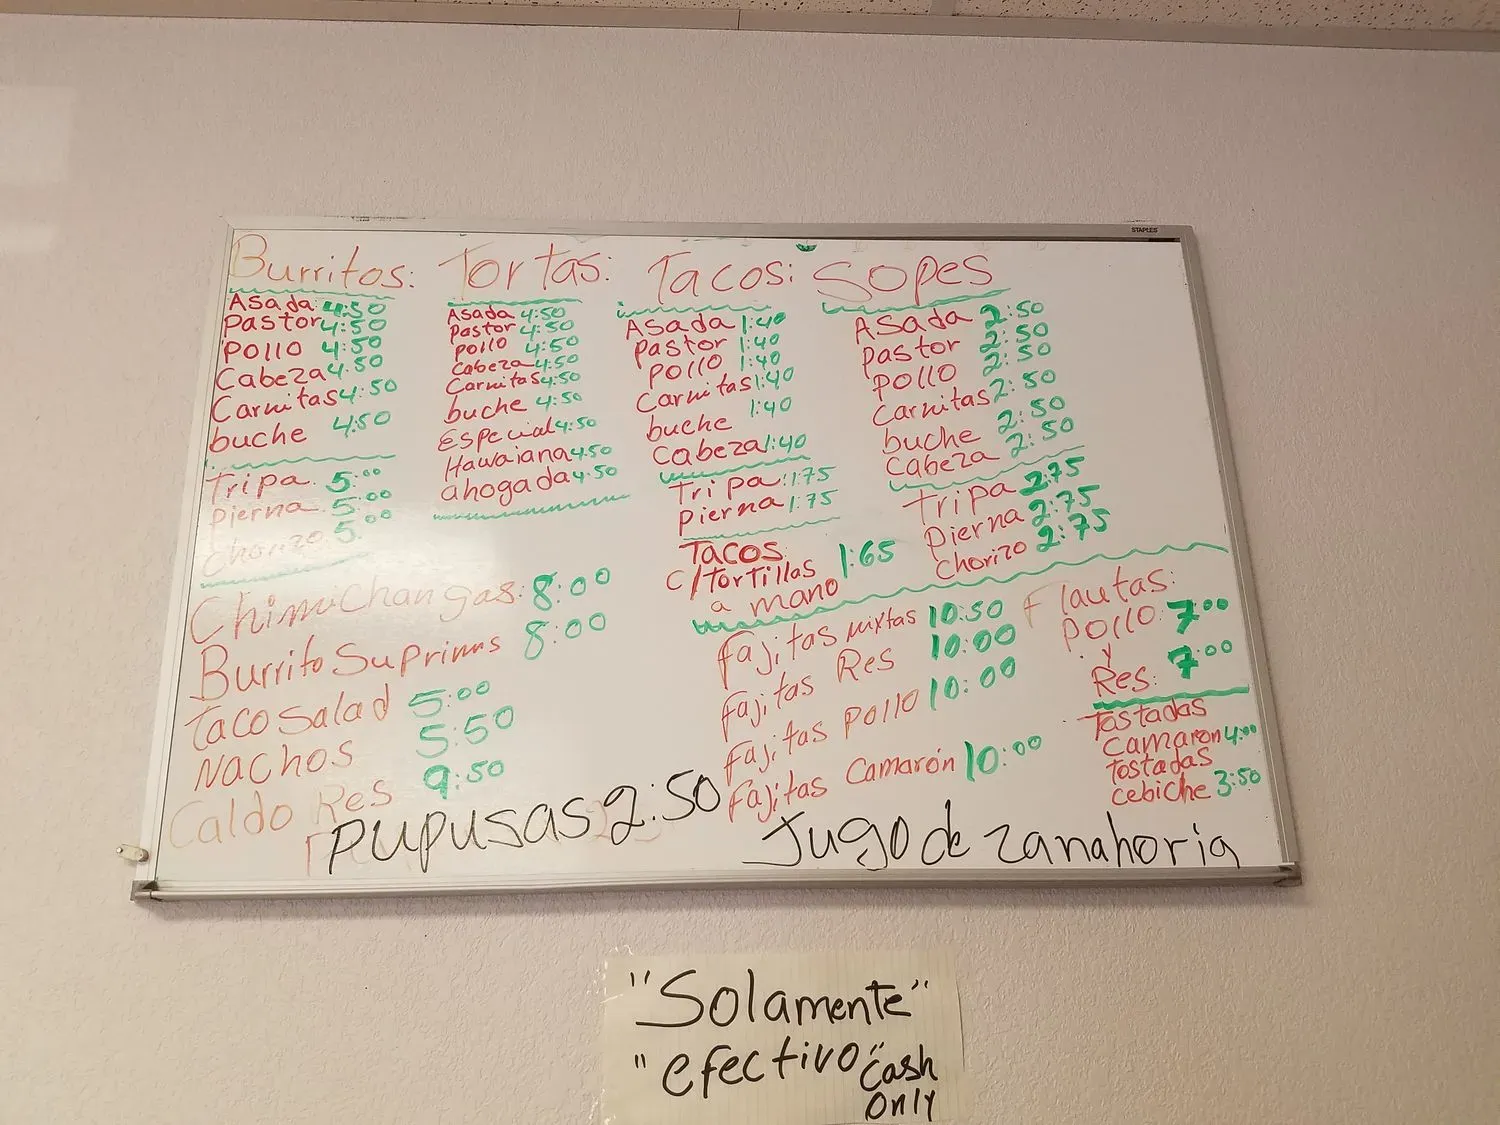 STAPLES
Burritos:
Asada: 4:50
Pastor 4:50
pollo 4:50
Cabeza 4:50
Carnitas 4:50
buche 4:50
Tripa 5:00
pierna 5:00
Chorizo 5:00
Tortas:
Asada 4:50
Pastor 4:50
pollo 4:50
Cabeza 4:50
Carnitas 4:50
buche 4:50
Especial 4:50
Hawaiana 4:50
ahogada 4:50
Tacos:
Asada 1:40
pastor 1:40
pollo 1:40
Carnitas 1:40
buche 1:40
Cabeza 1:40
Tripa 1:75
pierna 1:75
Tacos
c/tortillas 1:65
a mano
Sopes
Asada 2:50
pastor 2:50
pollo 2:50
Carnitas 2:50
buche 2:50
Cabeza 2:50
Tripa 2:75
Pierna 2:75
chorizo 2:75
ChimiChangas: 8:00
Burrito Suprimus 8:00
Taco Salad 5:00
Nachos 5:50
Caldo Res 9:50
pupusas 2:50
fajitas mixtas 10:50
fajitas Res 10:00
fajitas pollo 10:00
fajitas Camarón 10:00
Flautas:
pollo: 7:00
y
Res: 7:00
Tostadas
Camaron 4:00
Tostadas
cebiche 3:50
Jugo de zanahoria
"Solamente"
"efectivo"
Cash
Only